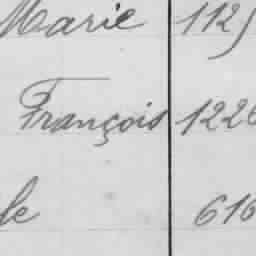 Marie 112
François 122
le 616